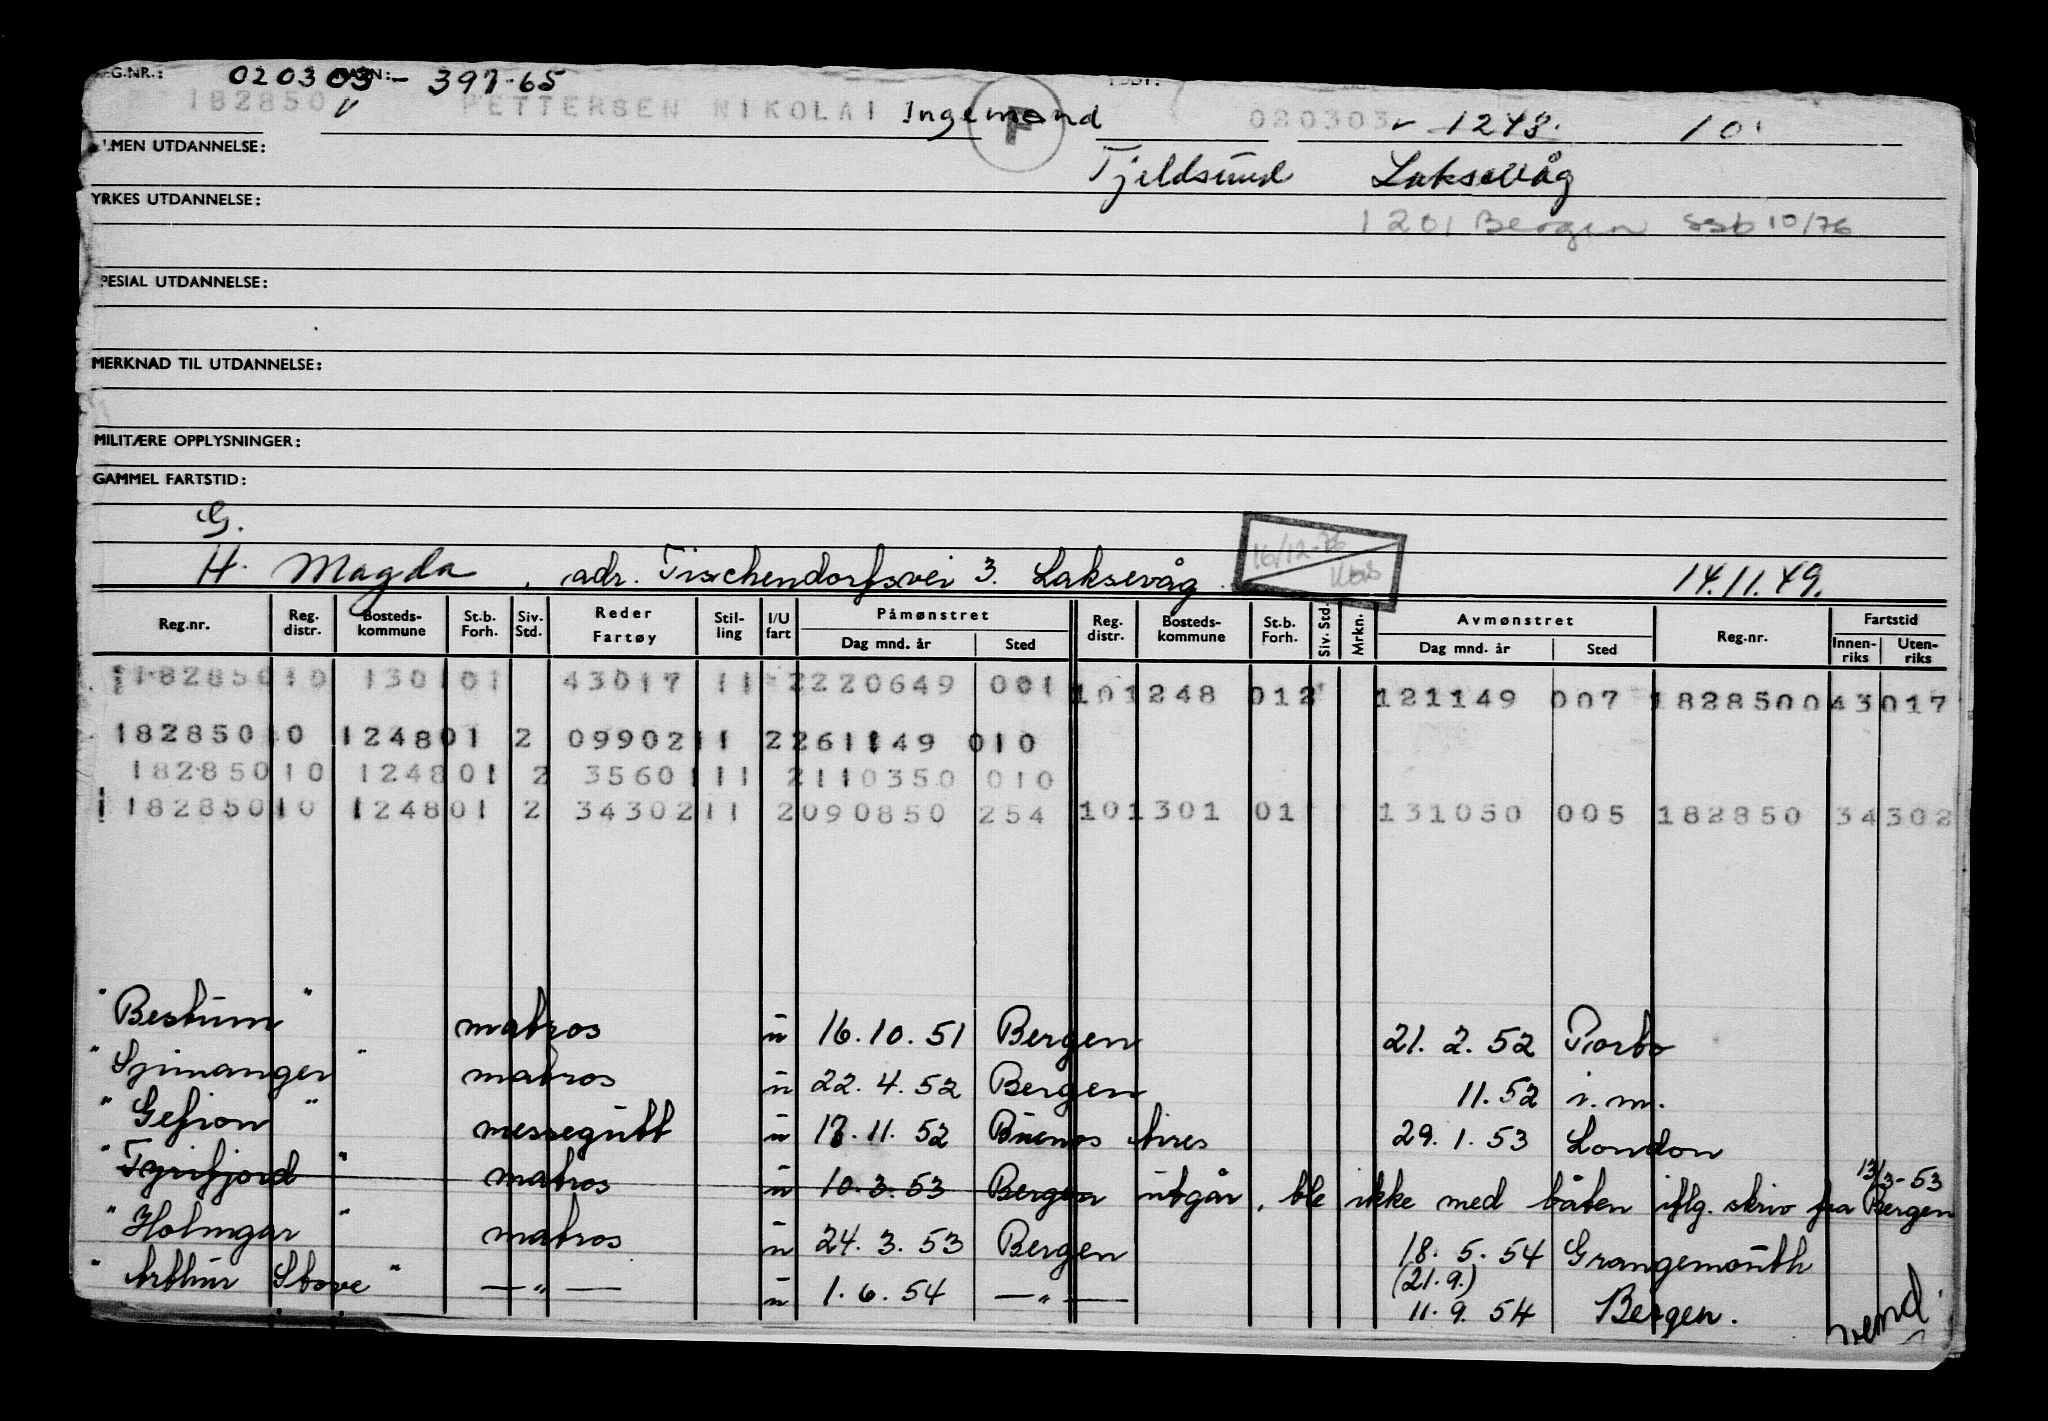 REG.NR.: 020303 - 397-65 NAVN:
182850 PETTERSEN NIKOLAI Ingemand F 020303 - 1248. 10.
ALMEN UTDANNELSE: Tjeldsund Laksevåg
YRKES UTDANNELSE: 1201 Bergen ssb 10/76
SPESIAL UTDANNELSE:
MERKNAD TIL UTDANNELSE:
MILITÆRE OPPLYSNINGER:
GAMMEL FARTSTID:
G.
H. Magda, adr. Tischendorfsvei 3. Laksevåg. 16/12-76 14.11.49.
Reg.nr. Reg. distr. Bosteds-kommune St.b. Forh. Siv. Std. Reder Fartøy Stil-ling I/U fart Påmønstret Dag mnd. år Sted Reg. distr. Bosteds-kommune St.b. Forh. Siv. Std. Mrkn. Avmønstret Dag mnd. år Sted Reg.nr. Fartstid Innen-riks Uten-riks
182850 10 1301 01 43017 11 2 220649 001 10 1248 012 121149 007 182850 0 43017
182850 10 1248 01 2 09902 11 2 261149 010
182850 10 1248 01 2 35601 11 2 110350 010
182850 10 1248 01 2 34302 11 2 090850 254 10 1301 01 131050 005 182850 34302
"Bestum" matros u 16.10.51 Bergen 21.2.52 Porto
"Spinanger" matros u 22.4.52 Bergen 11.52 i.m.
"Gefion" messegutt u 17.11.52 Buenos Aires 29.1.53 London
"Tyrifjord" matros u 10.3.53 Bergen utgår, ble ikke med båten iflg. skriv fra Bergen 13/3-53
"Holmgar" matros u 24.3.53 Bergen 18.5.54 Grangemouth
"Arthur Stove" — " — u 1.6.54 — " — (21.9.) 11.9.54 Bergen.
vend